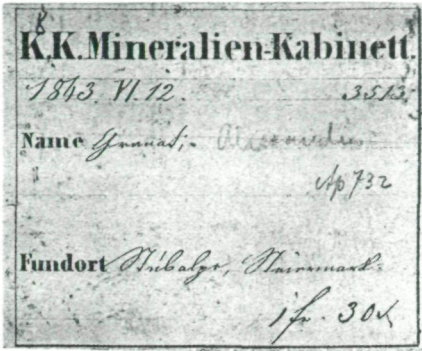 K.K. Mineralien-Kabinett.
1843. VI. 12. 3513.
Name Granat,
Ap 732
Fundort Stubalpe, Steiermark.
1 fr. 30